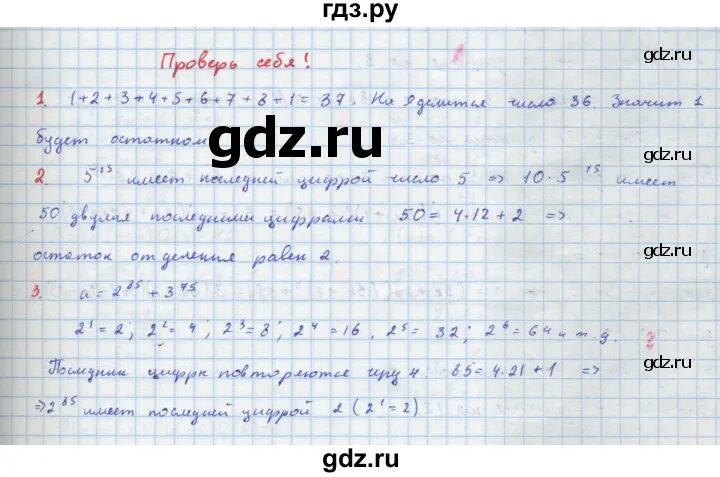 гдз.ру
Проверь себя!
gdz.ru
1. 1+2+3+4+5+6+7+8+1=37. На 9 делится число 36. Значит 1
будет остатком
gdz.ru
2. 5¹⁵ имеет последней цифрой число 5 => 10·5¹⁵ имеет
50 двумя последними цифрами 50=4·12+2 =>
gdz.ru
остаток от деления равен 2.
3. a=2⁸⁵+3⁷⁵
2¹=2; 2²=4; 2³=8; 2⁴=16, 2⁵=32; 2⁶=64 и т.д.
Последнии цифры повторяются чрез 4. 85=4·21+1 =>
=> 2⁸⁵ имеет последней цифрой 2 (2¹=2)
gdz.ru
gdz.ru